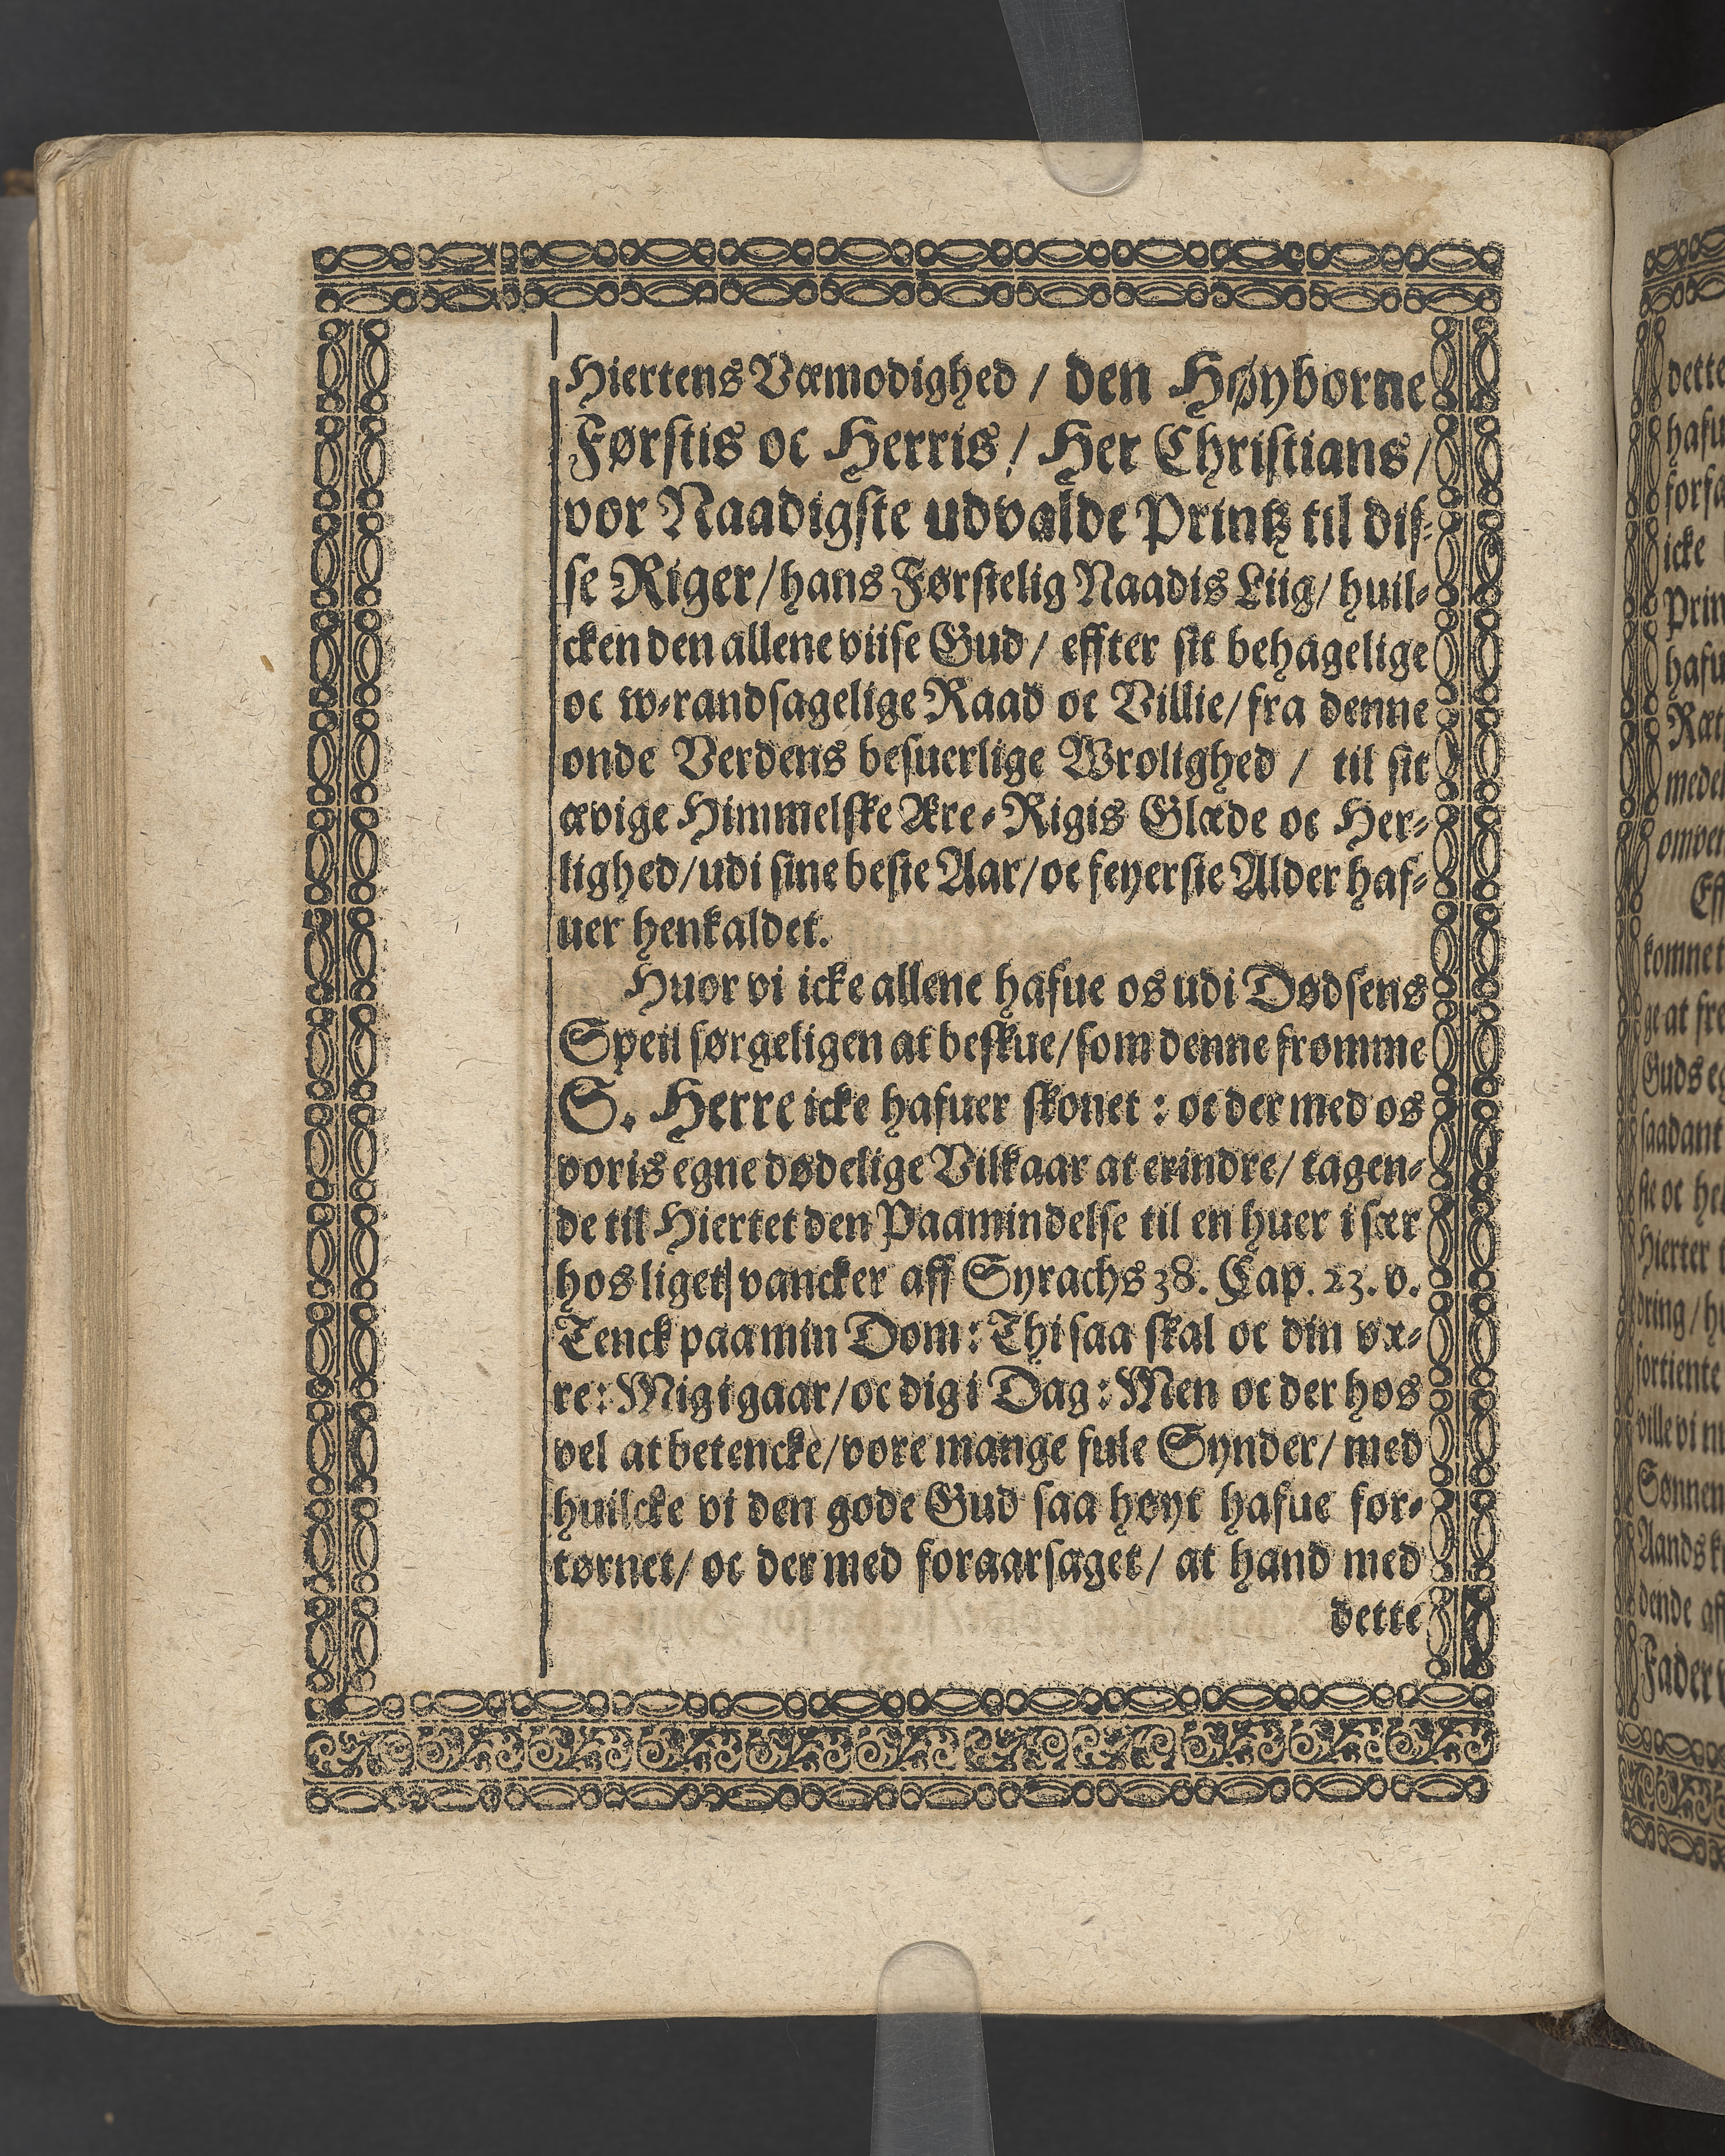 Hiertens Væmodighed / den Høyborne
Førstis oc Herris / Her Christians /
vor Naadigste udvalde Printz til dis-
se Riger / hans Førstelig Naadis Liig / huil-
cken den allene viise Gud / effter sit behagelige
oc w-randsagelige Raad oc Villie / fra denne
onde Verdens besuerlige Wrolighed / til sit
ævige Himmelske Ære-Rigis Glæde oc Her-
lighed / udi sine beste Aar / oc feyerste Alder haf-
uer henkaldet.
Huor vi icke allene hafue os udi Dødsens
Speil sørgeligen at beskue / som denne fromme
S. Herre icke hafuer skonet : oc der med os
voris egne dødelige Vilkaar at erindre / tagen-
de til Hiertet den Paamindelse til en huer i sær
hos liget vancker aff Syrachs 38. Cap. 23. v.
Tenck paa min Dom : Thi saa skal oc din væ-
re : Mig i gaar / oc dig i Dag : Men oc der hos
vel at betencke / vore mange fule Synder / med
huilcke vi den gode Gud saa høyt hafue for-
tørnet / oc der med foraarsaget / at hand med
dette
dette
hafu
forsa
icke
Prin
hafu
Ræt
meden
omven
Eff
komnet
ge at fre
Guds eg
saadant
ste oc hel
Hierter t
dring / hu
fortiente
ville vi m
Sønnen
Aands k
dende aff
Fader v